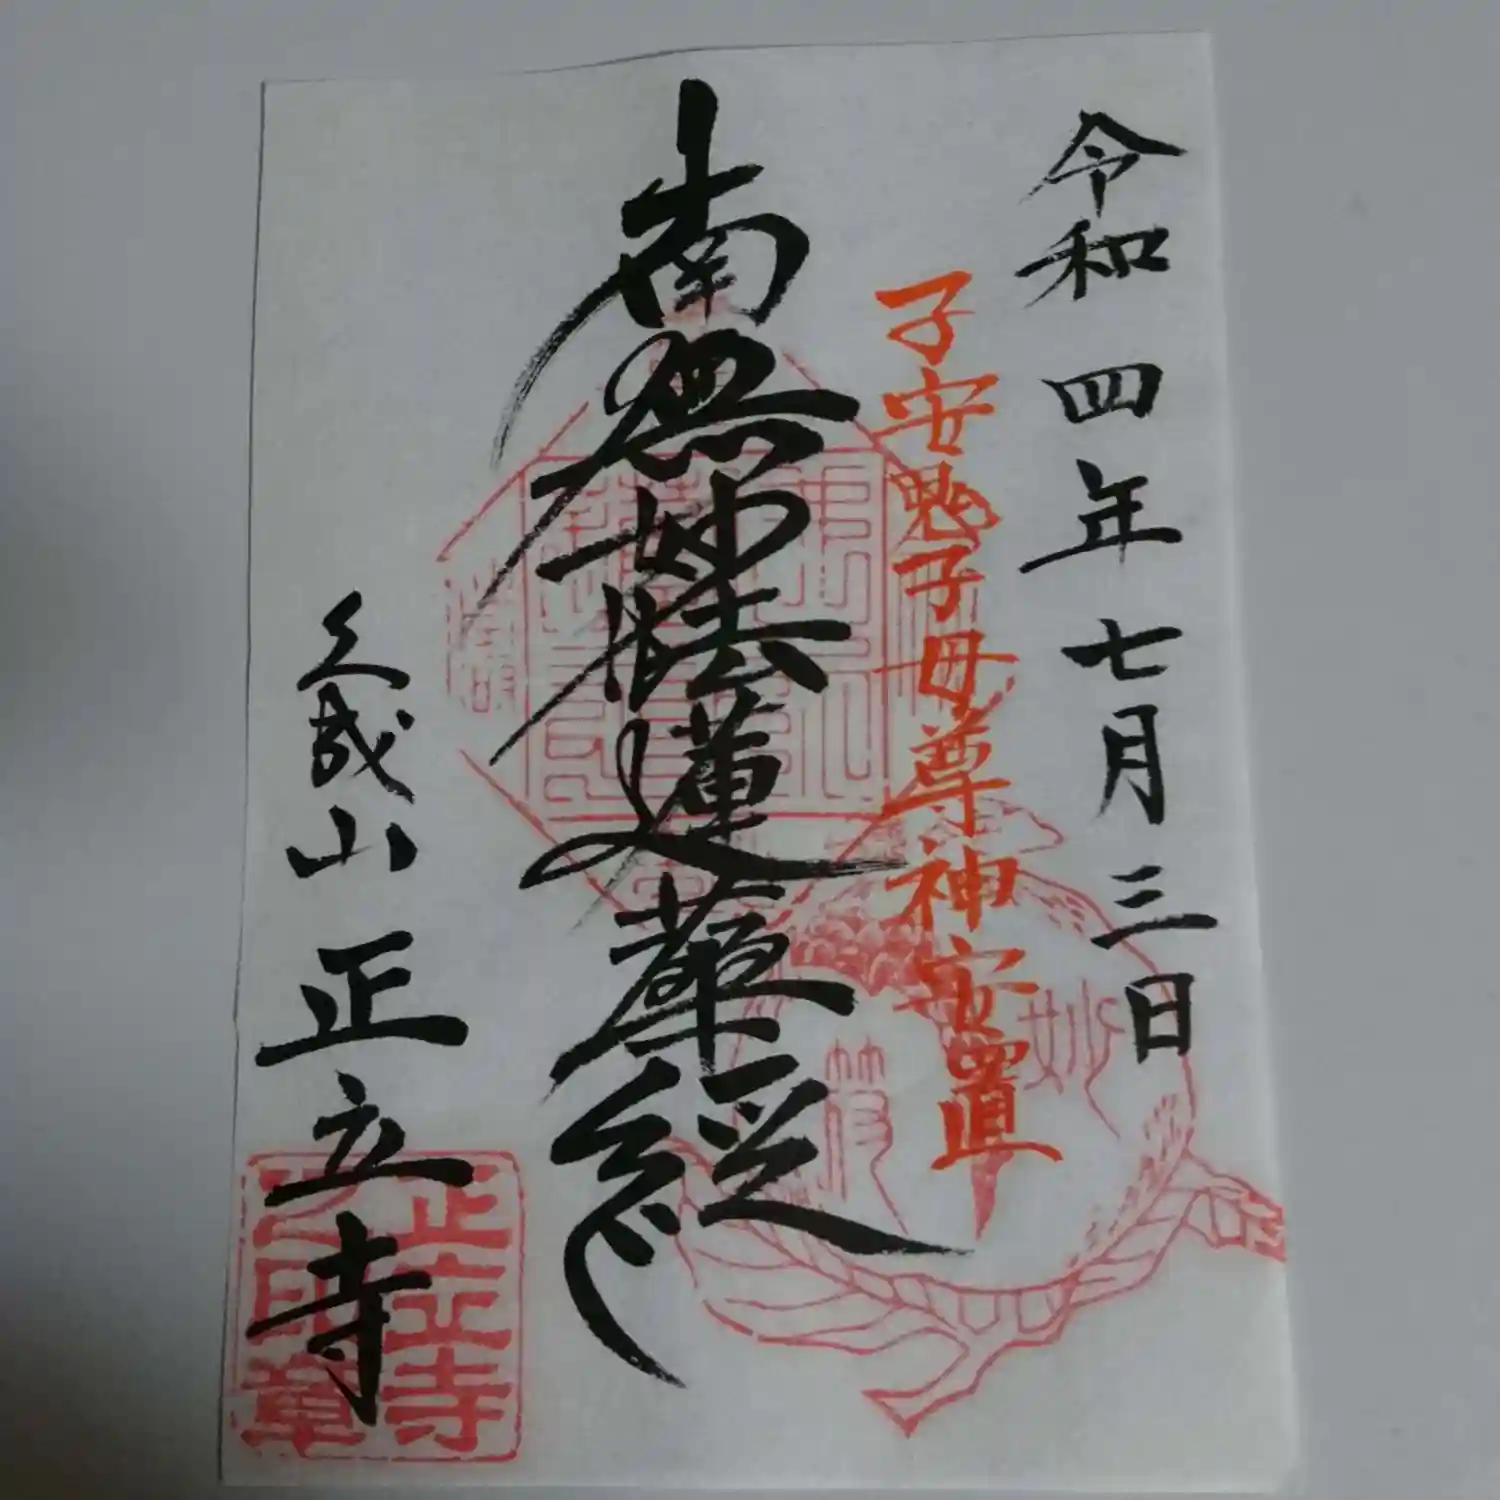 令和四年七月三日
子安鬼子母尊神安置
南無妙法蓮華経
久成山 正立寺
正立寺
之印章
妙